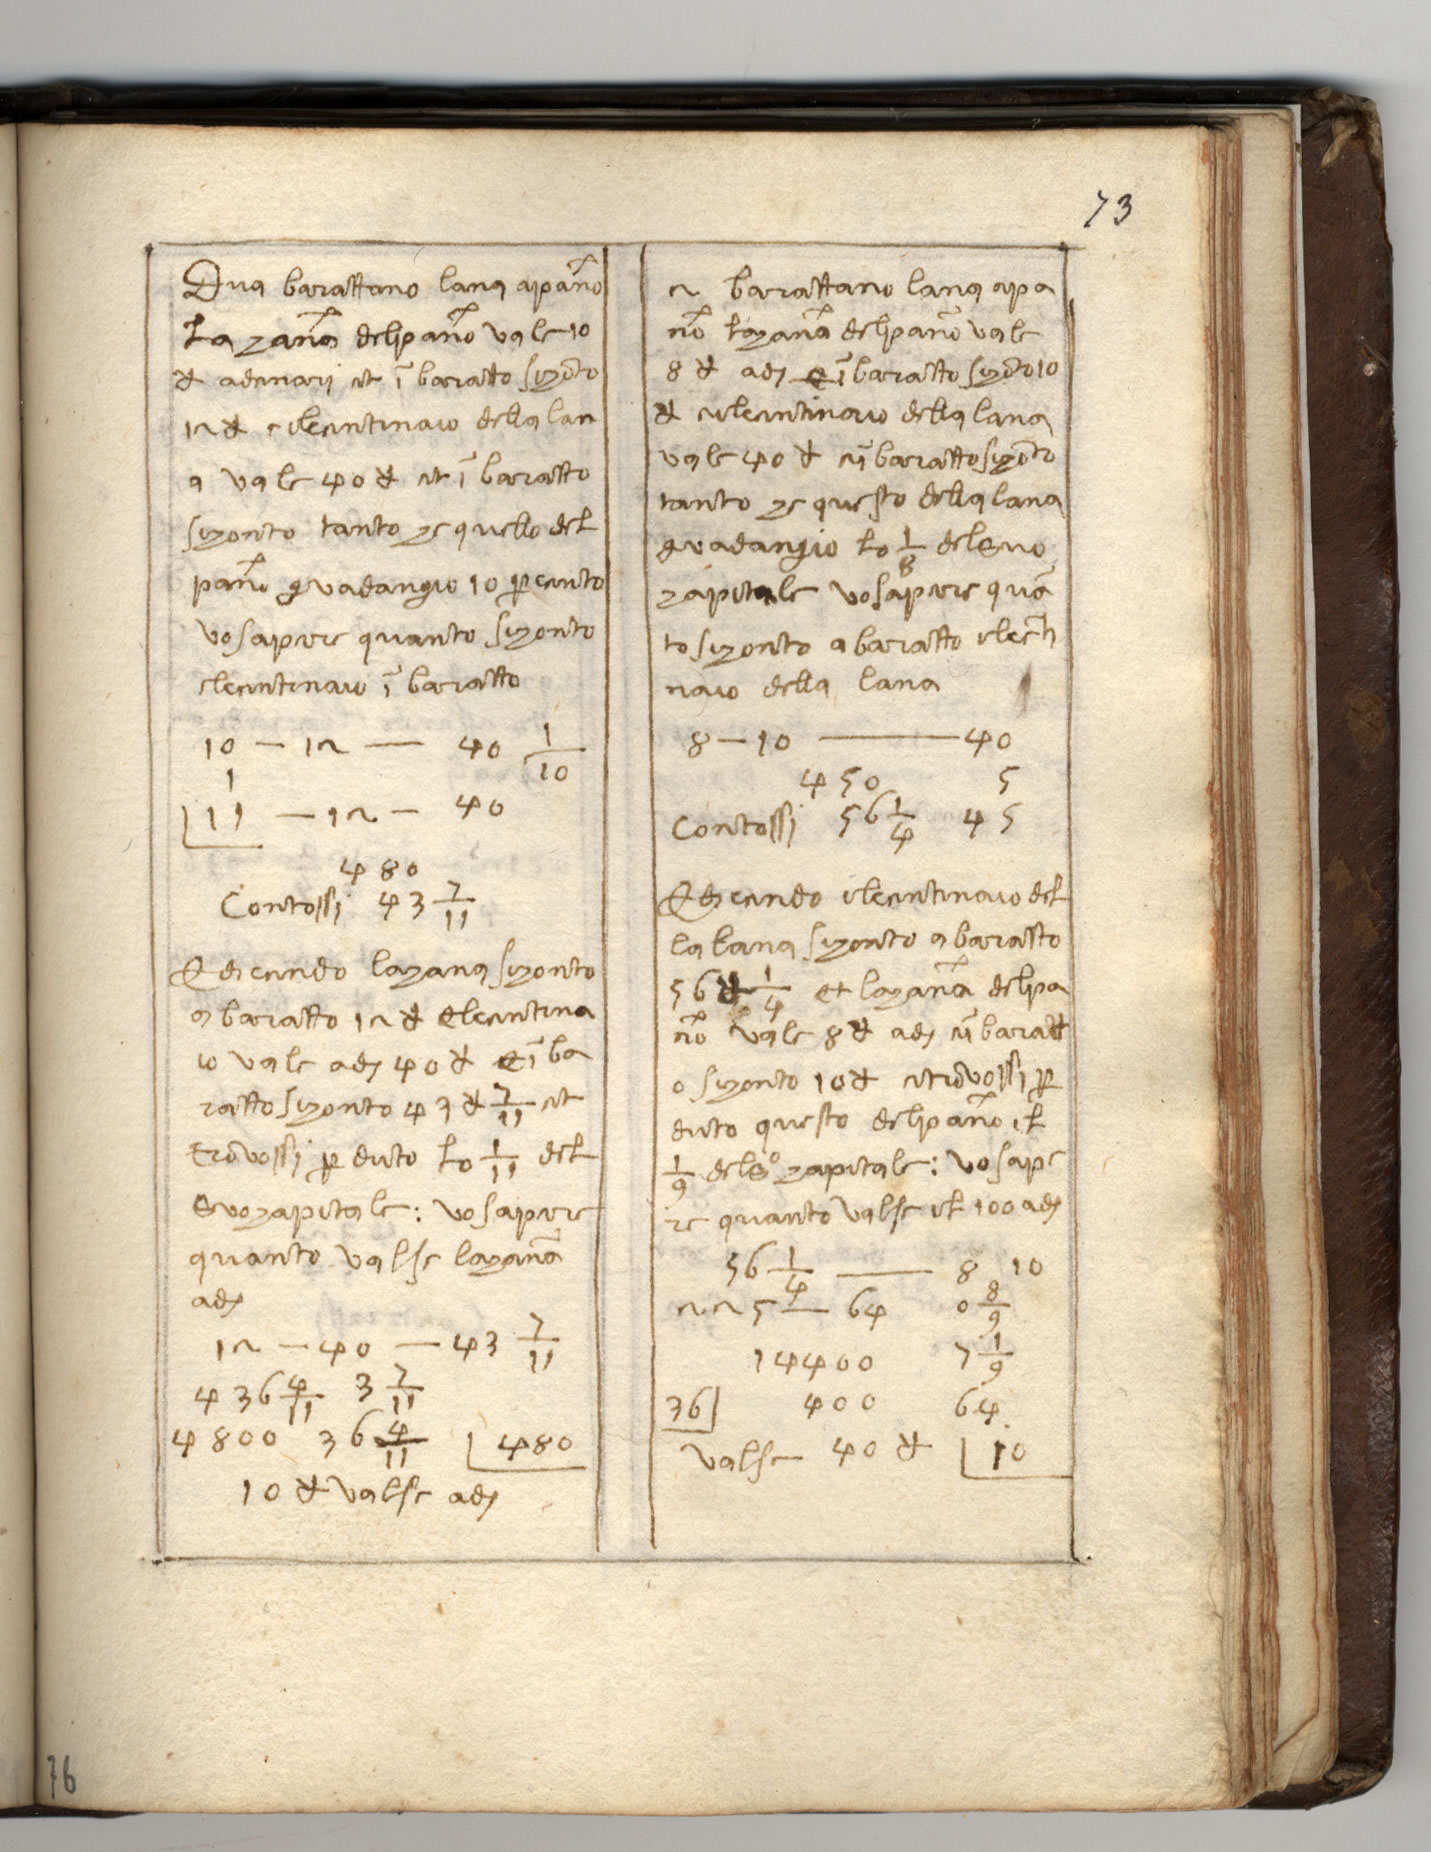 73
Dua barattano lana apan̄o
La zan̄a delpan̄o vale 10
d adenarj et ī baratto sizōto
12 d elcentinaio della lan
a vale 40 d et ī baratto
sizonto tanto ze quello del
pan̄o gvadangio 10 p cento
vo sapere quanto sizonto
elcentinaio ī baratto
10 — 12 — 40 1/10
1
11 — 12 — 40
480
Contossi 43 7/11
E dicendo lazana sizonto
a baratto 12 d elcentina
io vale adj 40 d e ī ba
ratto sizonto 43 d 7/11 et
trovossi p duto lo 1/11 del
suo zapitale: vo sapere
quanto valse lazanā
adj
12 — 40 — 43 7/11
436 4/11 3 7/11
4800 36 4/11 480
10 d valse adj
2 barattano lana apa
n̄o lazanā delpan̄o vale
8 d adj e ī baratto sizōto 10
d elcentinaio della lana
vale 40 d e ī baratto sizōto
tanto ze questo della lana
gvadangio lo 1/8 del suo
zapitale vo sapere quā
to sizonto a baratto elcēti
naio della lana
8 — 10 — 40
450 5
Contossi 56 1/4 45
E dicendo elcentinaio del
la lana sizonto a baratto
56 d 1/4 et lazanā delpa
n̄o vale 8 d adj e ī baratt
o sizonto 10 d et trovossi p
duto questo delpan̄o il
1/9 del so zapitale: vo sape
re quanto valse il 100 adj
56 1/4 — 8 10
225 — 64 0 8/9
14400 7 1/9
36 400 64
valse 40 d 10
76